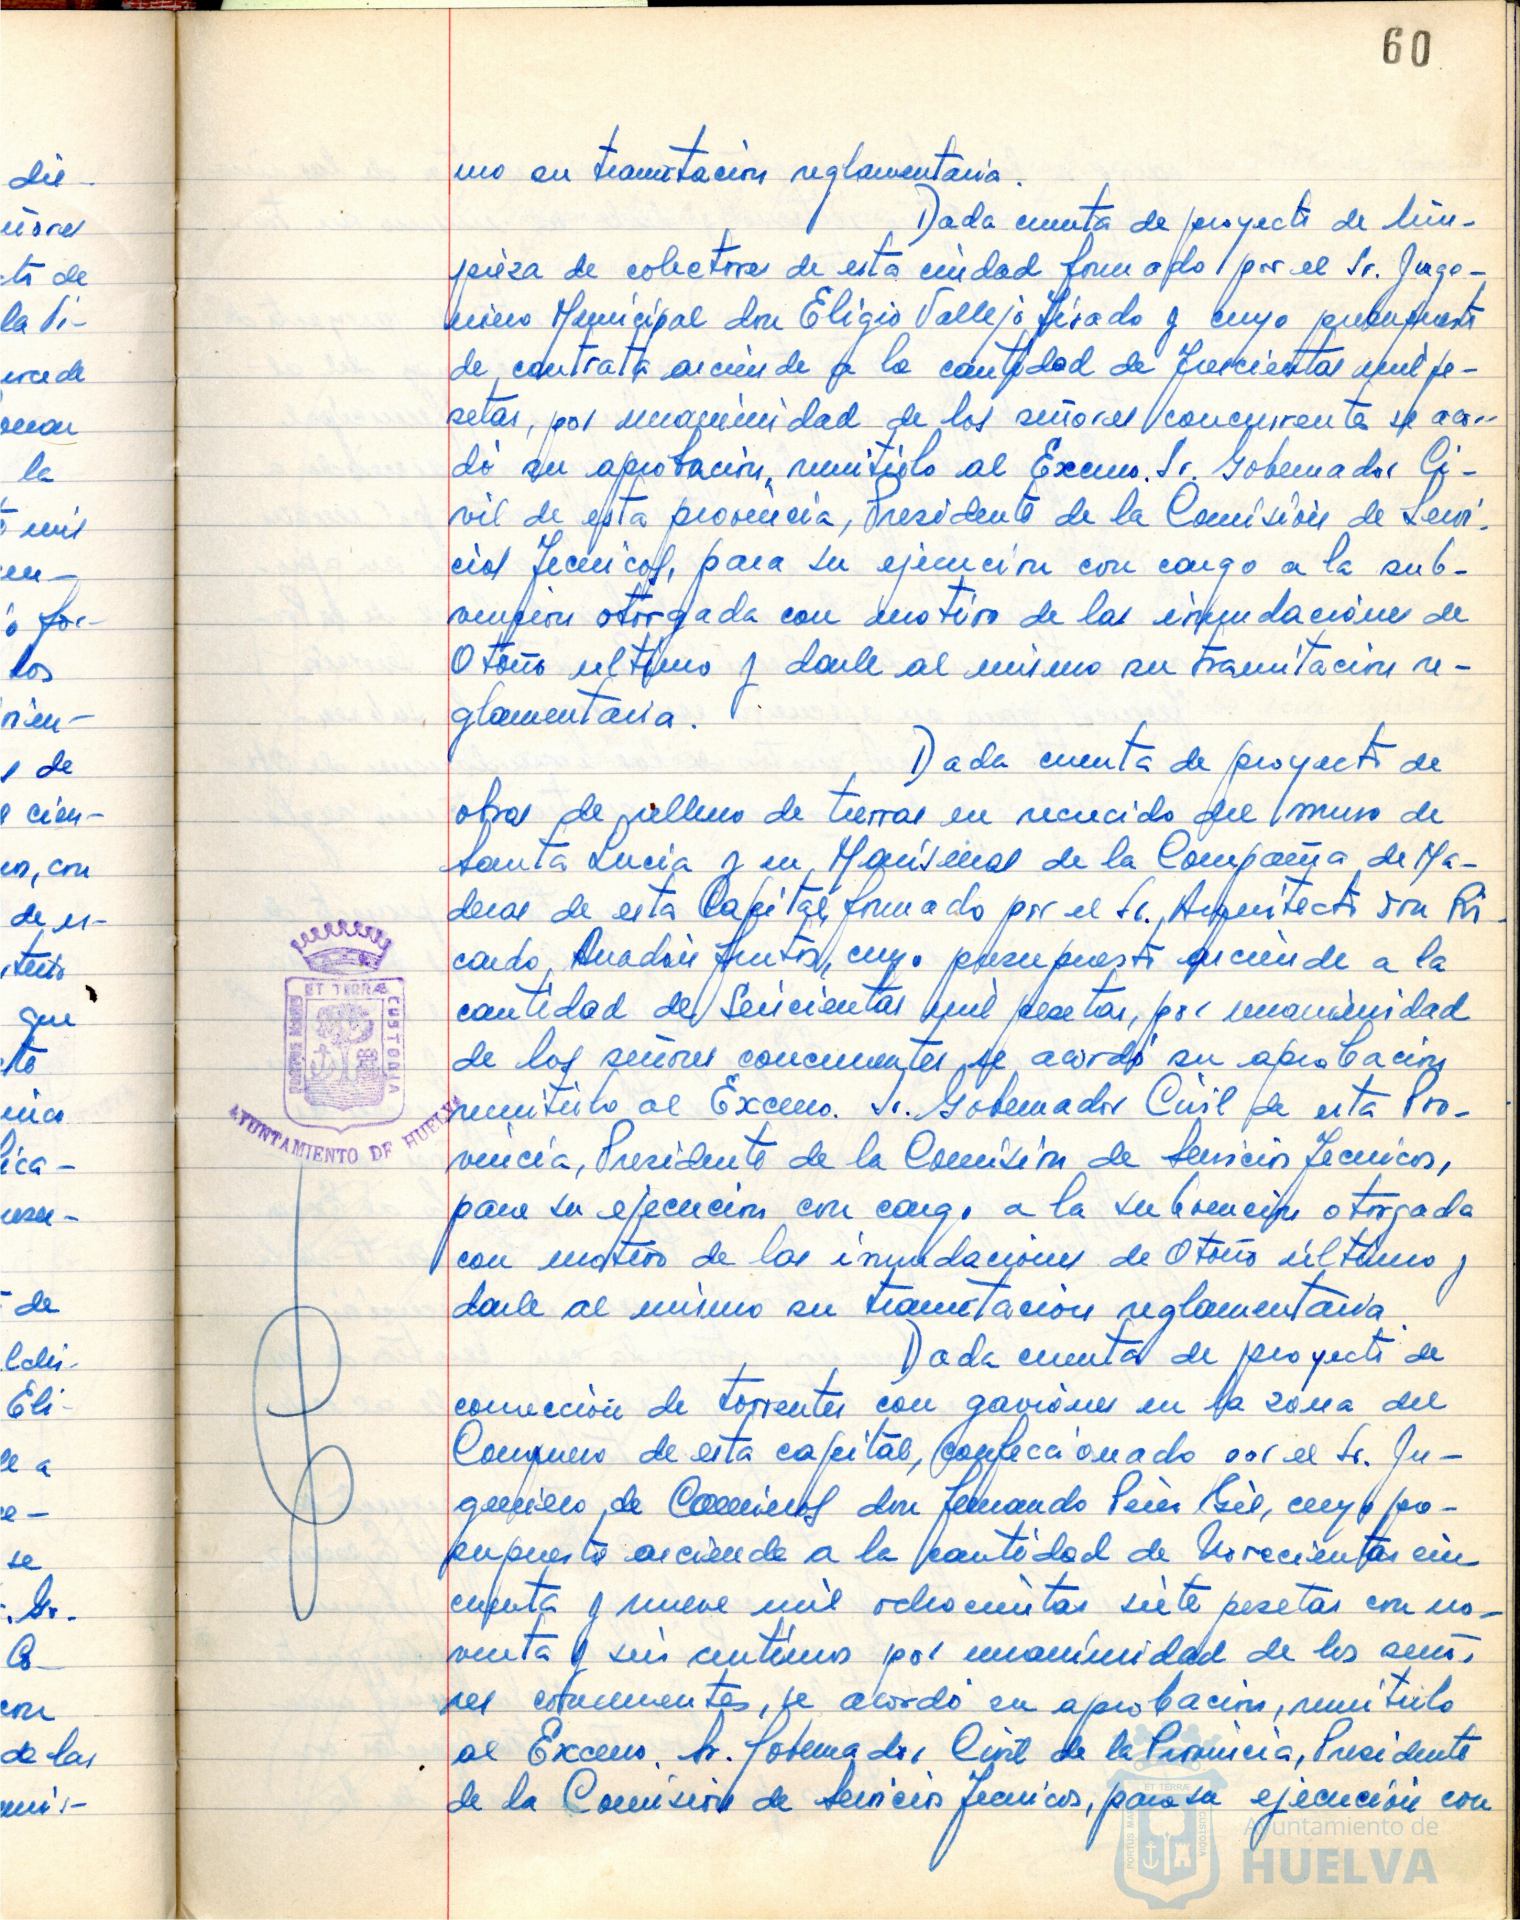 60
die-
ñores
cto de
la Pi-
la
mil
en-
ó for-
los
rien-
s de
e cien-
os, con
de es-
que
nico
lica-
de
Eli-
se
Sr.
Co-
con
de las
mo su tramitación reglamentaria.
Dada cuenta de proyecto de lim-
pieza de colectores de esta ciudad formado por el Sr. Inge-
niero Municipal don Eligio Vallejo Tirado y cuyo presupuesto
de contrata asciende a la cantidad de Trescientas mil pe-
setas, por unanimidad de los señores concurrentes se acor-
dó su aprobación, remitirlo al Excmo. Sr. Gobernador Ci-
vil de esta provincia, Presidente de la Comisión de Servi-
cios Tecnicos, para su ejecución con cargo a la sub-
vención otorgada con motivo de las inundaciones de
Otoño ultimo y darle al mismo su tramitación re-
glamentaria.
Dada cuenta de proyecto de
obras de relleno de tierras en recrecido del muro de
Santa Lucia y en Marismas de la Compañia de Ma-
deras de esta Capital, formado por el Sr. Arquitecto don Ri-
cardo Anadón Frutos, cuyo presupuesto asciende a la
cantidad de Seiscientas mil pesetas, por unanimidad
de los señores concurrentes se acordó su aprobación
remitirlo al Excmo. Sr. Gobernador Civil de esta Pro-
vincia, Presidente de la Comisión de Servicios Tecnicos,
para su ejecución con cargo a la subvención otorgada
con motivo de las inundaciones de Otoño último y
darle al mismo su tramitación reglamentaria
Dada cuenta de proyecto de
corrección de torrentes con gaviones en la zona del
Conquero de esta capital, confeccionado por el Sr. In-
geniero de Caminos don Fernando Peiro Gil, cuyo pre-
supuesto asciende a la cantidad de Novecientas cin
cuenta y nueve mil ochocientas siete pesetas con no-
venta y seis centimos por unanimidad de los seño-
res concurrentes, se acordó su aprobación, remitirlo
al Excmo. Sr. Gobernador Civil de la Provincia, Presidente
de la Comisión de Servicios Tecnicos, para su ejecución con
PORTUS MARIS ET TERRÆ CUSTODIA
AYUNTAMIENTO DE HUELVA
PORTUS MARIS ET TERRÆ CUSTODIA
Ayuntamiento de
HUELVA